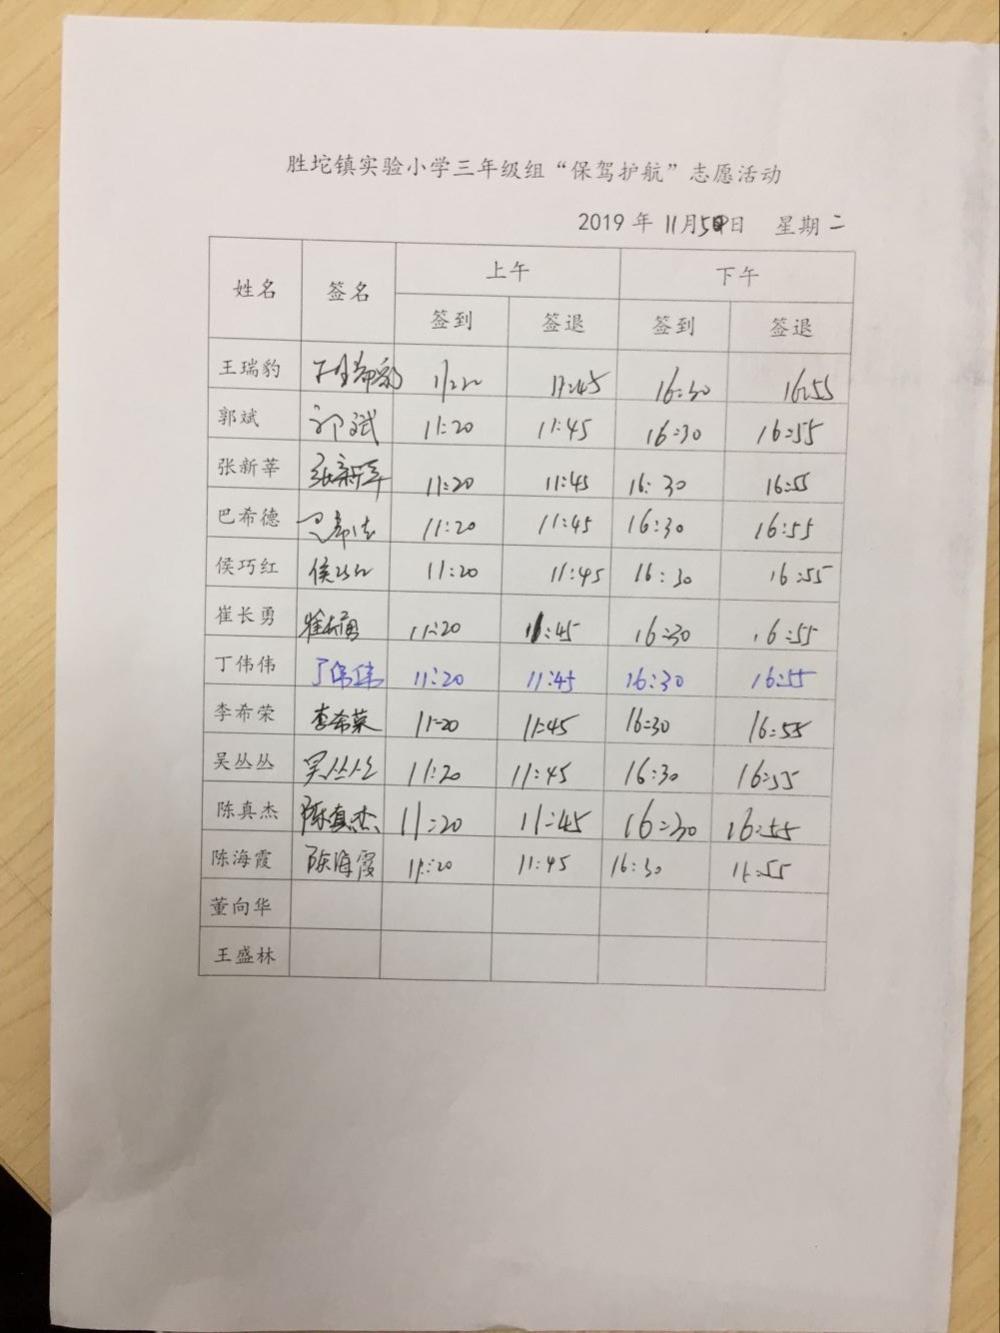 胜坨镇实验小学三年级组“保驾护航”志愿活动
2019 年 11月5日 星期二
姓名 签名 上午 下午
签到 签退 签到 签退
王瑞豹 王瑞豹 11:20 11:45 16:30 16:55
郭斌 郭斌 11:20 11:45 16:30 16:55
张新莘 张新莘 11:20 11:45 16:30 16:55
巴希德 巴希德 11:20 11:45 16:30 16:55
侯巧红 侯巧红 11:20 11:45 16:30 16:55
崔长勇 崔长勇 11:20 11:45 16:30 16:55
丁伟伟 丁伟伟 11:20 11:45 16:30 16:55
李希荣 李希荣 11:20 11:45 16:30 16:55
吴丛丛 吴丛丛 11:20 11:45 16:30 16:55
陈真杰 陈真杰 11:20 11:45 16:30 16:55
陈海霞 陈海霞 11:20 11:45 16:30
董向华
王盛林